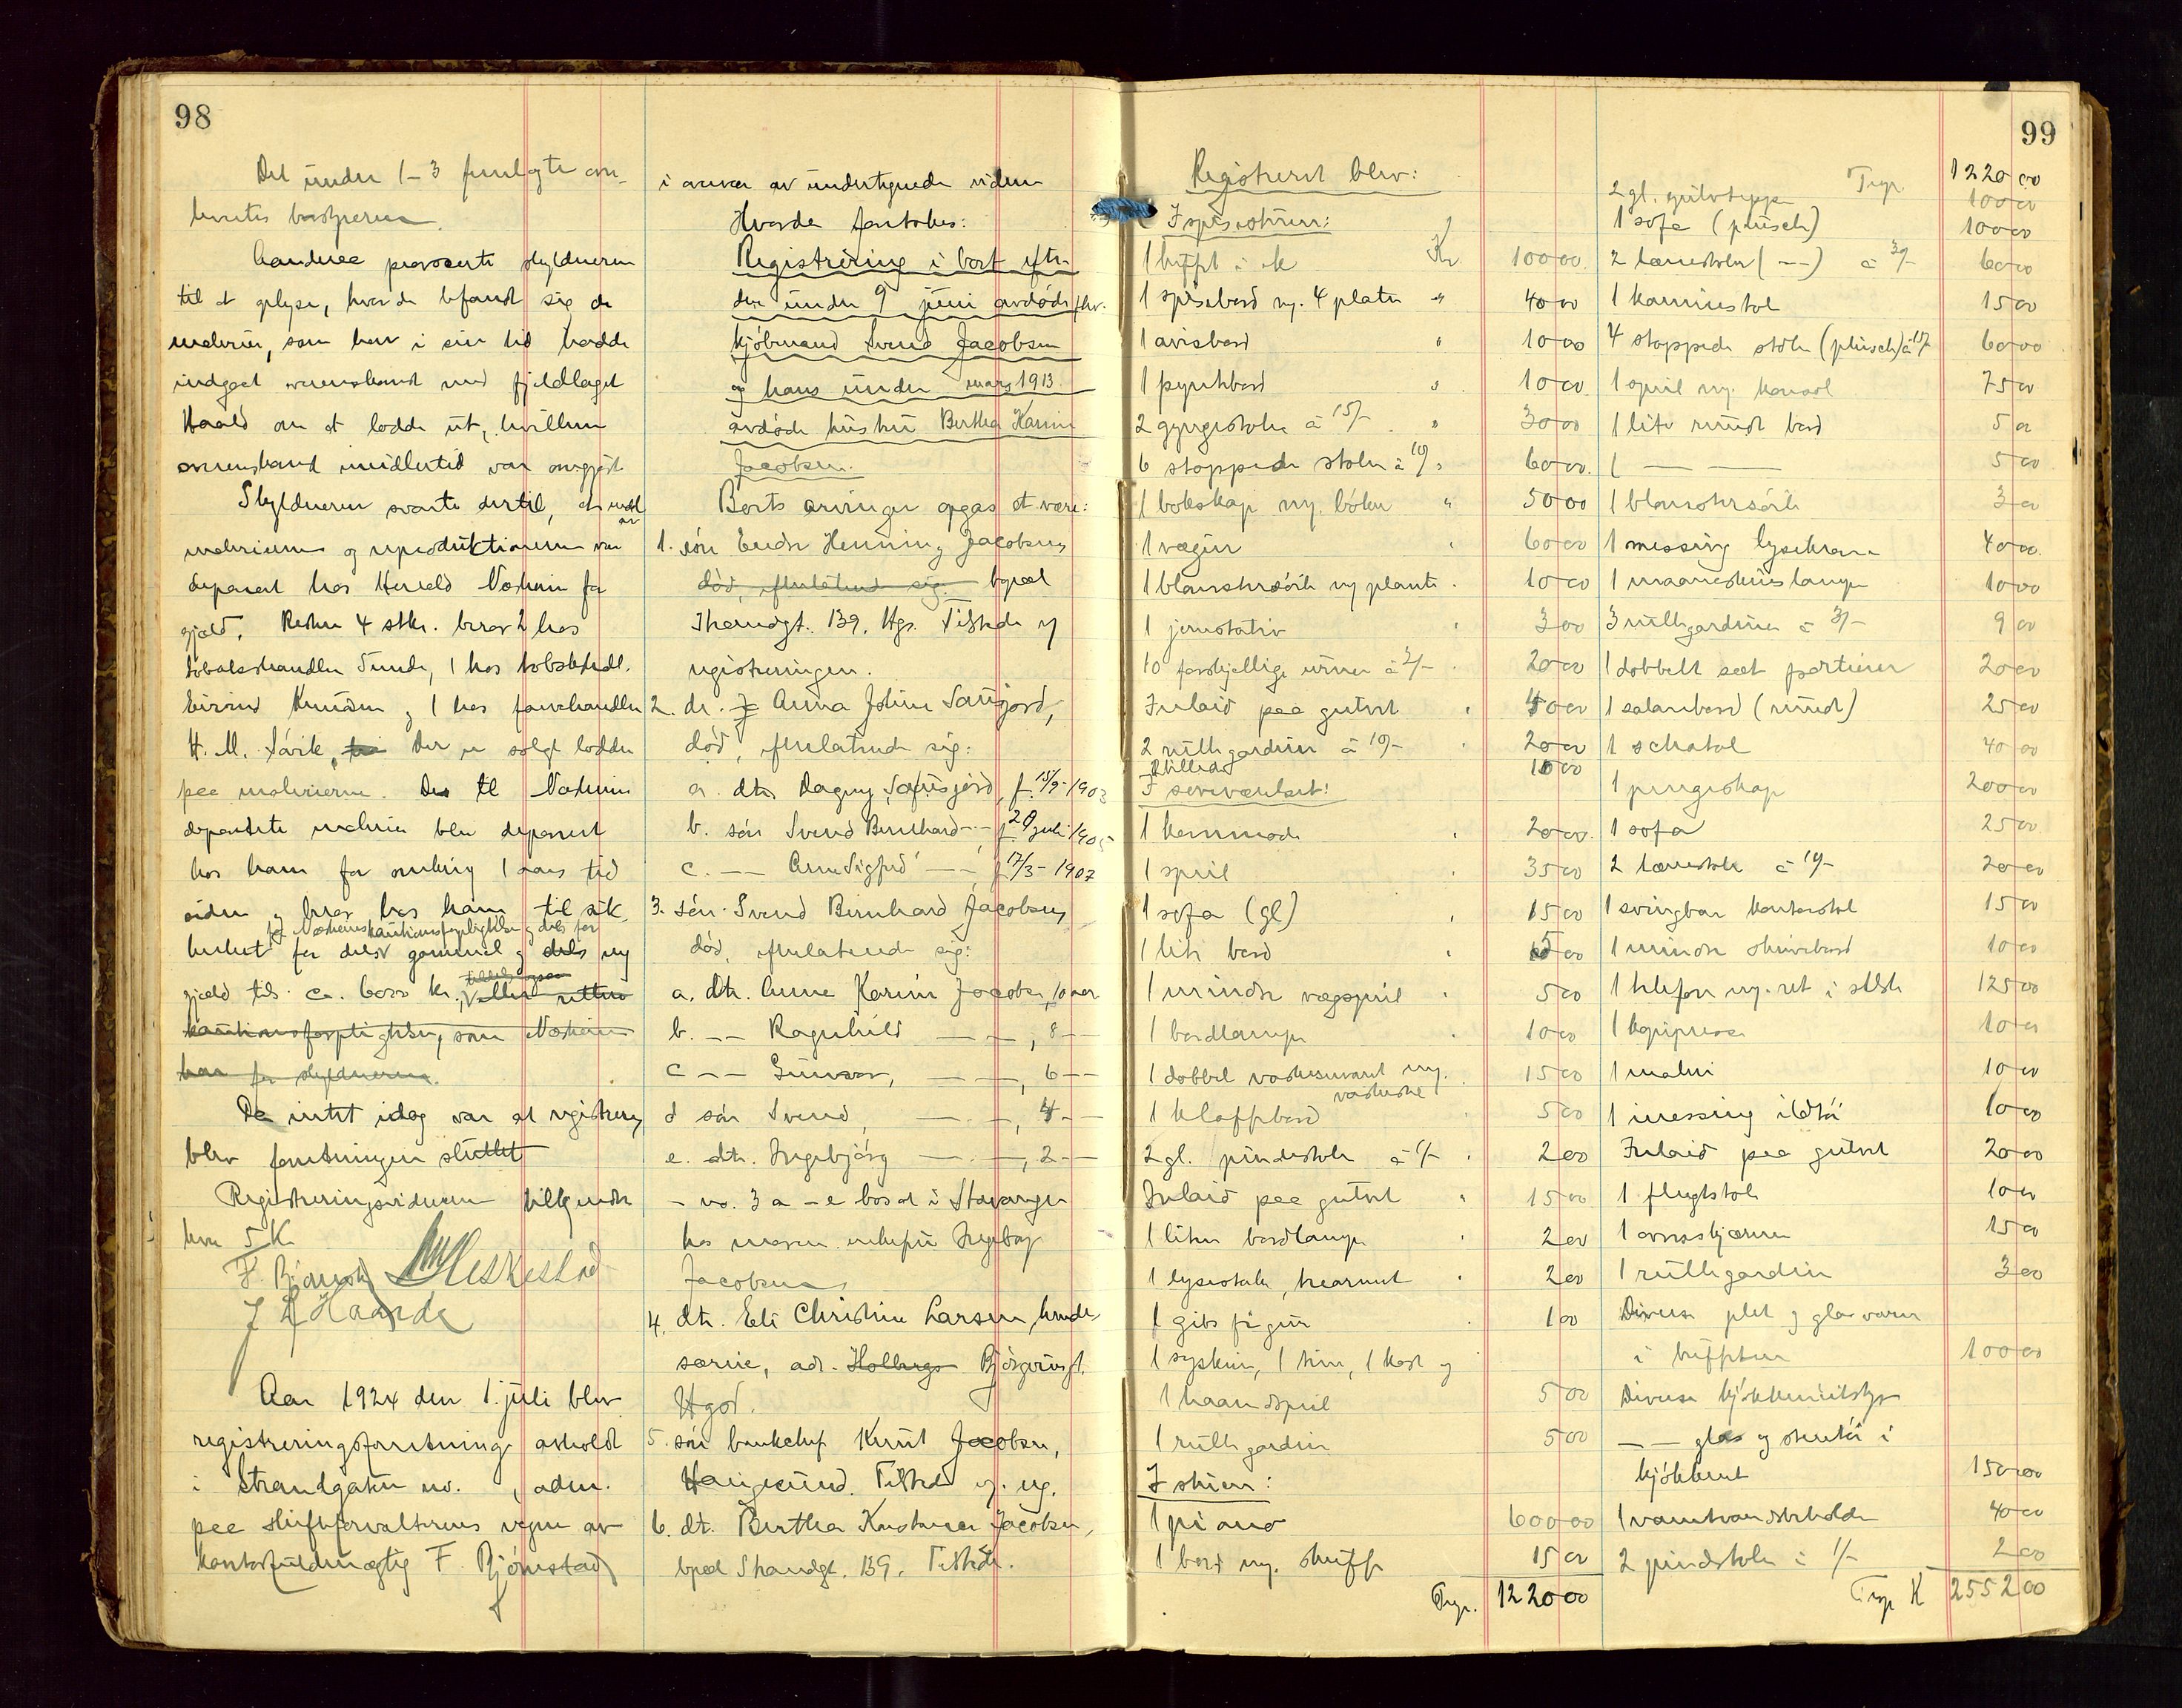 98
Det under 1-3 fremlagte
bevertes
Aandnes provocerte skyldneren
til at oplyse, hvor de befandt sig de
malerier, som han i sin tid hadde
indgaat overenskomst med fjeldlaget
Haald om at lodde ut, hvilken
overenskomst imidlertid var omgjort.
Skyldneren svarte dertil, at endel av
malerierne og reproduktionerne var
deponert hos Harald Norheim for
gjæld. Resten 4 stkr. beror 2 hos
tobakshandler Tunde, 1 hos tobakshdl.
Eivind Knudsen og 1 hos farvehandler
H. M. Søvik, Der er solgt lodder
paa malerierne. De til Norheim
deponerte malerier blev deponert
hos ham for omkring 1 aars tid
siden og beror hos ham til sik-
for Norheims kautionsforpligtelse og dels for
kerhet for delsv gammel og dels ny
gjæld tils. ca. 6000 kr.
kautionsforpligtelser, som Norheim
har for skyldneren.
Da intet idag var at registrere,
blev forretningen sluttet
Registreringsvidnerne tilkjendtes
hver 5 K.
F. Bjørnstad
J Haarde
Aar 1924 den 1. juli blev
registreringsforretning avholdt
i Strandgaten no. , adm.
paa skifteforvalterens vegne av
kontorfuldmægtig F. Bjørnstad
i nærvær av undertegnede vidner
Hvorda foretokes:
Registrering i boet efter
den under 9 juni avdøde fhv.
kjøbmand Svend Jacobsen
og hans under mars 1913
avdøde hustru Bertha Karine
Jacobsen.
Boets arvinger opgas at være:
1. søn Endre Henning Jacobsen,
død, efterlatende sig bopæl
Strandgt. 139. Hgs. Tilstede v
registreringen.
2. dr. Anna Joline Sausjord,
død, efterlatende sig:
a. dtr. Dagny Sausjord, f. 15/9-1903
b. søn Svend Bernhard -"-, f. 20 juli 1905
c. -- Arne Sigfred -"-, f 17/3-1907
3. søn Svend Bernhard Jacobsen,
død, efterlatende sig:
a. dtr. Anne Karine Jacobsen, 10 aar
b. -- Ragnhild -- --, 8 --
c -- Gunvor, -- --, 6 --
d søn Svend, -- --, 4 --
e. dtr. Ingebjørg -- --, 2 --
- no. 3 a - e bosat i Stavanger
hos moren enkefru Ingeborg
Jacobsen
4. dtr. Eli Christine Larsen,
særeie, adr. Holbergs Bjørgvinsgt.
Hgsd.
5. søn bankchef Knut Jacobsen,
Haugesund. Tilsted v. reg.
6. dt. Bertha Jacobsen,
bopæl Strandgt. 139. Tilstede.
99
Registrert blev:
I spisestuen:
1 buffet i ek Kr 100 00
1 spisebord m. 4 plater " 40 00
1 avisbord " 10 00
1 pyntebord " 10 00
2 gyngestoler á 15/- " 30 00
6 stoppede stoler á 10/- " 60 00
1 bokskap m. bøker " 50 00
1 vægur 60 00
1 blomstersøile m plante 10 00
1 jernstativ 3 00
10 forskjellige urner á 2/- 20 00
Inlaid paa gulvet 40 00
2 rullegardiner á 10/- 20 00
billeder 10 00
I soveværelset:
1 kommode 20 00
1 speil 35 00
1 sofa (gl) 15 00
1 lite bord 5 00
1 mindre vægspeil 5 00
1 bordlampe 10 00
1 dobbel vaskeservant m. 15 00
vaskestel
1 klaffbord 5 00
2 gl. pindestoler á 1/- 2 00
Inlaid paa gulvet 15 00
1 liten bordlampe 2 00
1 lysestake, trearmet 2 00
1 gibs figur 1 00
1 syskrin, 1 kost og
1 haandspeil 5 00
1 rullegardin 5 00
I stuen:
1 piano 600 00
1 bord m. skuffe 15 00
Trsp. 1220 00
Trsp. 1220 00
2 gl. gulvtepper 100 00
1 sofa (plüsch) 100 00
2 lænestoler (--) á 3/- 60 00
1 kaminstol 15 00
4 stoppede stoler (plüsch) á 15/- 60 00
1 speil m. konsol 75 00
1 lite rundt bord 5 00
1 -- -- 5 00
1 blomstersøile 3 00
1 messing lysekrone 40 00
1 maaneskinslampe 10 00
3 rullegardiner á 3/- 9 00
1 dobbelt sæt portierer 20 00
1 salonbord (rundt) 25 00
1 schatol 40 00
1 pengeskap 200 00
1 sofa 25 00
2 lænestoler á 10/- 20 00
1 svingbar kontorstol 15 00
1 mindre skrivebord 10 00
1 telefon m. ret i selsk 125 00
1 kopipresse 10 00
1 maleri 10 00
1 messing ildtøi 10 00
Inlaid paa gulvet 20 00
1 flugtstol 10 00
1 ovnsskjærm 15 00
1 rullegardin 3 00
Diverse plet og glasvarer
i buffeten 100 00
Diverse kjøkkenutstyr
-- glas og stentøi i
kjøkkenet 150 00
1 varmtvandsbeholder 40 00
2 pindstoler á 1/- 2 00
Trsp K 2552 00